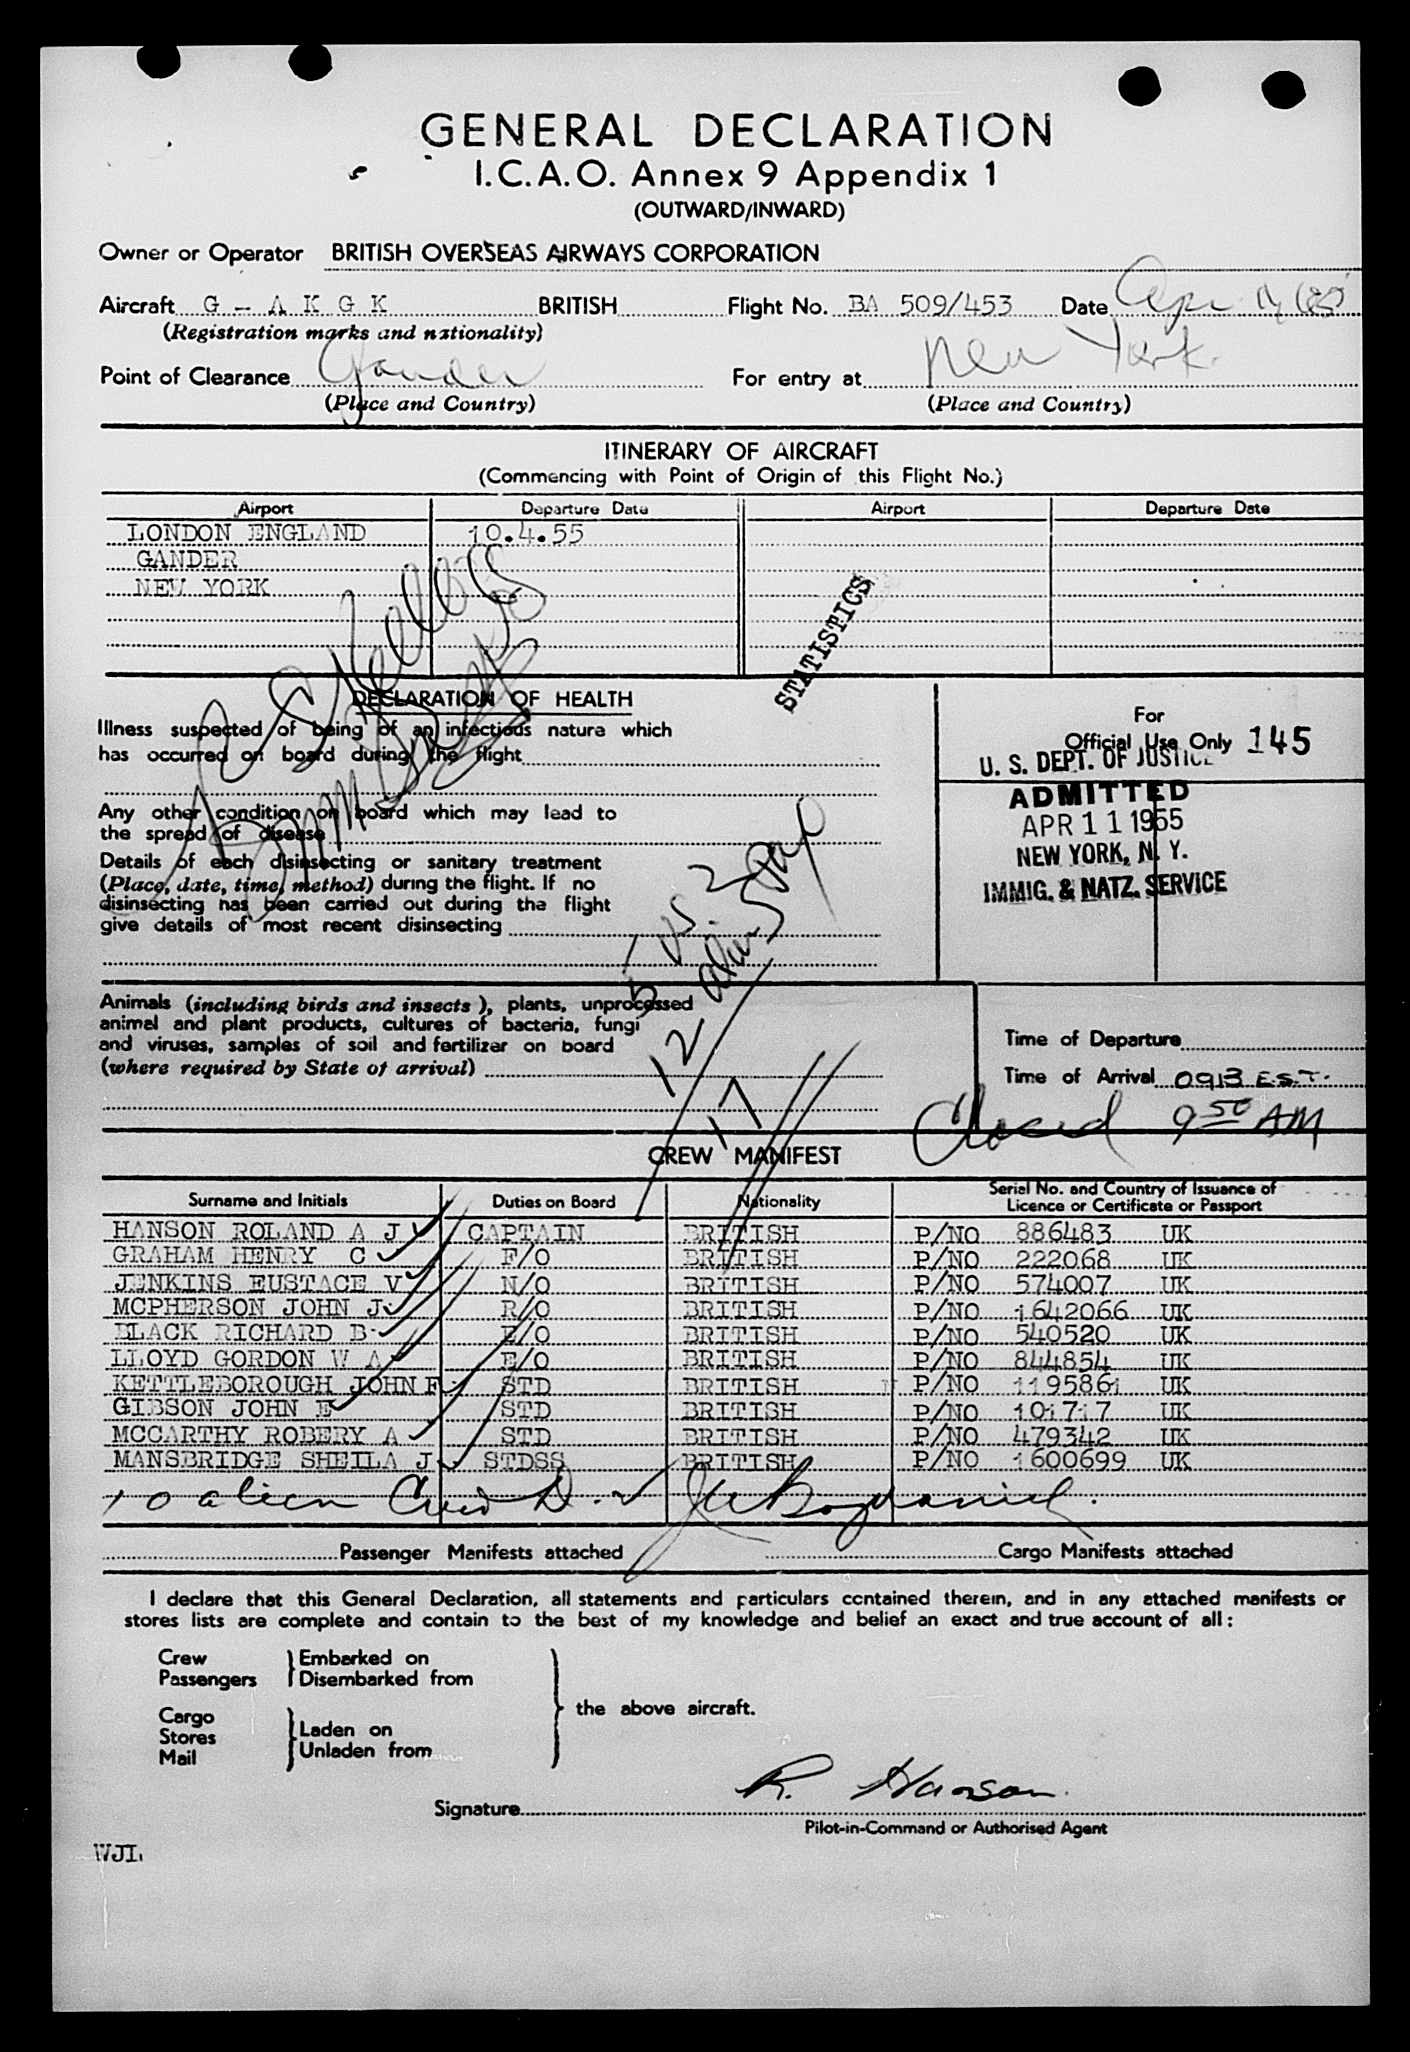 GENERAL DECLARATION
I.C.A.O. Annex 9 Appendix 1
(OUTWARD/INWARD)
Owner or Operator BRITISH OVERSEAS AIRWAYS CORPORATION
Aircraft G - A K G K BRITISH Flight No. BA 509/453 Date
(Registration marks and nationality)
Point of Clearance Gander For entry at New York
(Place and Country) (Place and Country)
ITINERARY OF AIRCRAFT
(Commencing with Point of Origin of this Flight No.)
Airport Departure Date Airport Departure Date
LONDON ENGLAND 10.4.55
GANDER
NEW YORK
STATISTICS
DECLARATION OF HEALTH
Illness suspected of being of an infectious nature which
has occurred on board during the flight
Any other condition on board which may lead to
the spread of disease
Details of each disinsecting or sanitary treatment
(Place, date, time, method) during the flight. If no
disinsecting has been carried out during the flight
give details of most recent disinsecting
For
Official Use Only 145
U. S. DEPT. OF JUSTICE
ADMITTED
APR 11 1955
NEW YORK, N. Y.
IMMIG. & NATZ. SERVICE
5 US 2
12
17
Animals (including birds and insects), plants, unprocessed
animal and plant products, cultures of bacteria, fungi
and viruses, samples of soil and fertilizer on board
(where required by State of arrival)
Time of Departure
Time of Arrival 0913 E.S.T.
Closed 9 50 AM
CREW MANIFEST
Surname and Initials Duties on Board Nationality Serial No. and Country of Issuance of Licence or Certificate or Passport
HANSON ROLAND A J CAPTAIN BRITISH P/NO 886483 UK
GRAHAM HENRY C F/O BRITISH P/NO 222068 UK
JENKINS EUSTACE V N/O BRITISH P/NO 574007 UK
MCPHERSON JOHN J R/O BRITISH P/NO 1642066 UK
BLACK RICHARD B E/O BRITISH P/NO 540520 UK
LLOYD GORDON W A E/O BRITISH P/NO 844854 UK
KETTLEBOROUGH JOHN F STD BRITISH P/NO 1195861 UK
GIBSON JOHN E STD BRITISH P/NO 101717 UK
MCCARTHY ROBERY A STD BRITISH P/NO 479342 UK
MANSBRIDGE SHEILA J STDSS BRITISH P/NO 1600699 UK
10 alien Crew
Passenger Manifests attached Cargo Manifests attached
I declare that this General Declaration, all statements and particulars contained therein, and in any attached manifests or
stores lists are complete and contain to the best of my knowledge and belief an exact and true account of all :
Crew Embarked on
Passengers Disembarked from
the above aircraft.
Cargo
Stores Laden on
Mail Unladen from
Signature R. Hanson
Pilot-in-Command or Authorised Agent
WJL